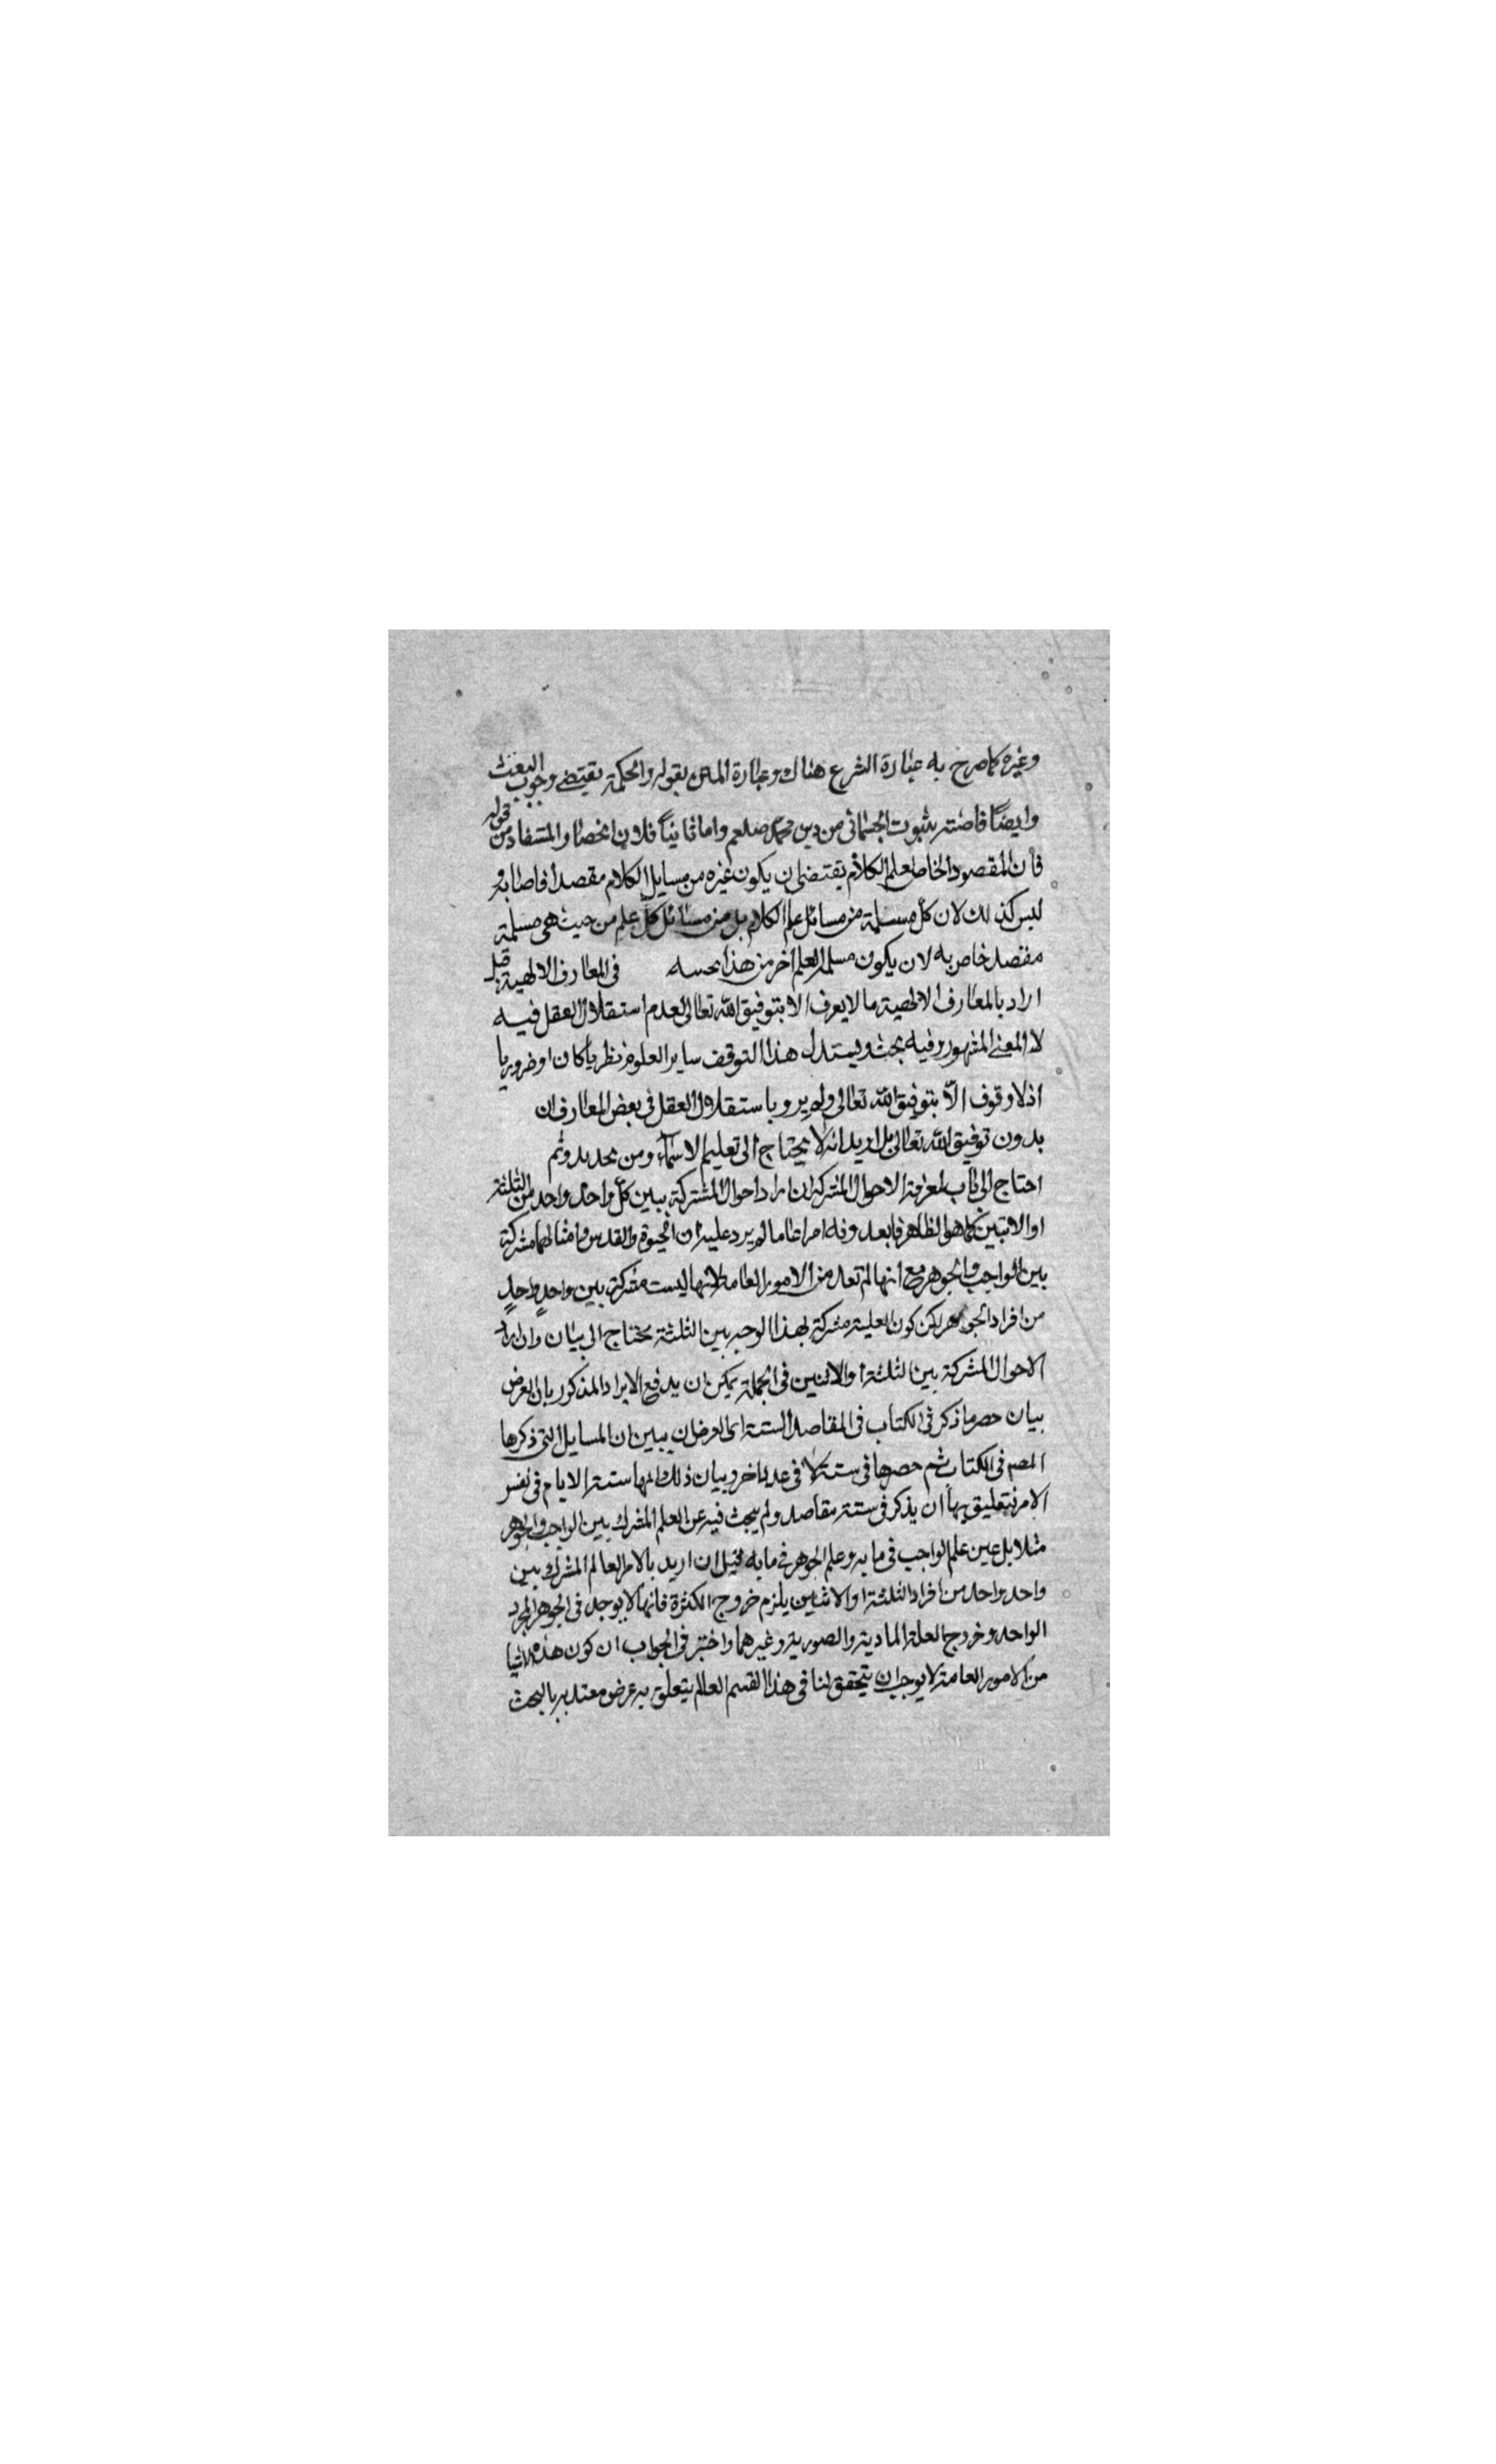 وغيره كما صرح به عبارة الشرع هناك وعبارة المص بقوله والحكمة يقتضى وجوب البعث
وايضًا فاصته بثبوت الجسمانى من دين محمد صلعم واما ثانياً فلان انحصار المستفاد من قوله
فان المقصود الخاص لعلم الكلام يقتضى ان يكون غيره من مسايل الكلام مقصدا فاصا به و
ليس كذلك لان كل مسئلة من مسائل علم الكلام بل من مسائل كل علم من حيث هى مسئلة
مقصد خاص به لان يكون مسئلة لعلم اخر من هذا بحسبه فى المعارف الالهية قيل
اراد بالمعارف الالهية ما لا يعرف الا بتوفيق الله تعالى لعدم استقلال العقل فيه
لا المعنى المشهور وفيه بحث ويستدل هذا التوقف ساير العلوم نظريا كان او ضروريا
اذ لا وقوف الّا بتوفيق الله تعالى ولم يرو باستقلال العقل فى بعض المعارف ان
بدون توفيق الله تعالى بل اريد انه لا يحتاج الى تعليم الاسماء ومن يحديد وثم
احتاج الى باب لمعرفة الاحوال المشتركة ان اراد احوال المشتركة بين كل واحد واحد من الثلثة
او الاثنين كما هو الظاهر فابعد وفه امرا عاما لم يرد عليه ان الحيوة والقدرة وامثالهما مشتركة
بين الواجب والجوهر مع انها لم تعد من الامور العامة لانها ليست مشتركة بين واحدٍ واحدٍ
من افراد الجوهر لكن كون العلية مشتركة بهذا الوجه بين الثلثة يحتاج الى بيان وان اراد
الاحوال المشتركة بين الثلثة او الاثنين فى الجملة يمكن ان يدفع الايراد المذكور بان الغرض
بيان حصر ما ذكر فى الكتاب فى المقاصد الستة اى الغرض ان يبين ان المسايل التى ذكرها
المصم فى الكتاب ثم حصرها فى ستة لا فى عدد اخر وبيان ذلك انها ستة الايام فى نفس
الامر فتعليق بها ان يذكر فى ستة مقاصد ولم يبحث فيه عن العلم المشترك بين الواجب والجوهر
مثلا بل عين علم الواجب فى ما به وعلم الجوهر فى ما به فقيل ان اريد بالامر العالم المشترك بين
واحد واحد من افراد الثلثة او الاثنين يلزم خروج الكثرة فانها لا يوجد فى الجوهر المجرد
الواحد وخروج العلة المادية والصورية وغيرهما واختير فى الجواب ان كون هذه الاشيا
من الامور العامة لا يوجب ان يتحقق لنا فى هذا القسم العالم يتعلق به غرض معتد به بالبحث